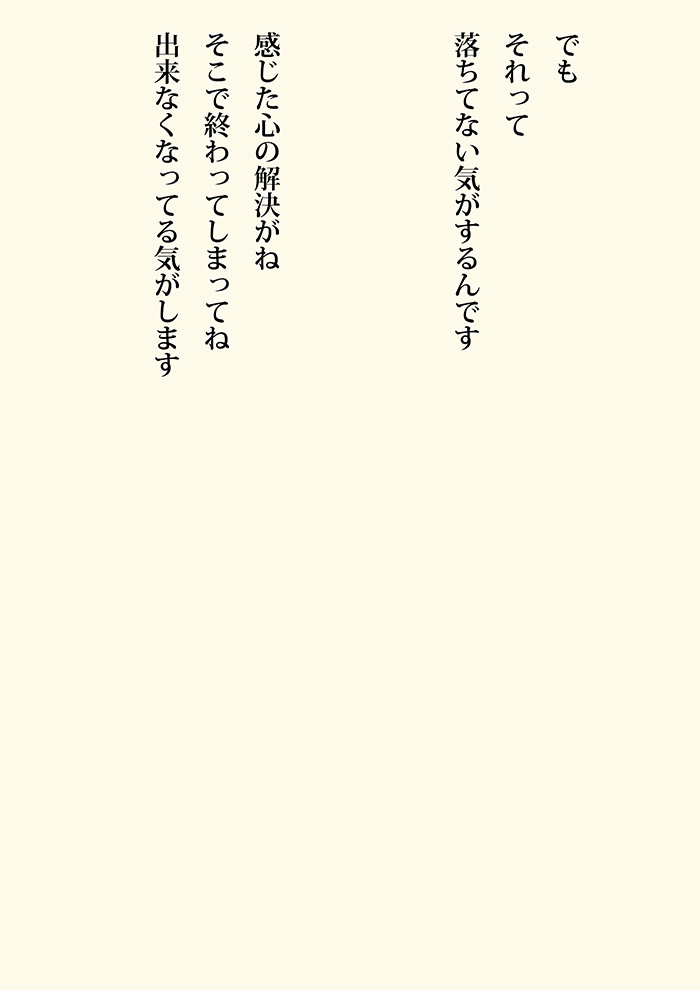 でも
それって
落ちてない気がするんです
感じた心の解決がね
そこで終わってしまってね
出来なくなってる気がします